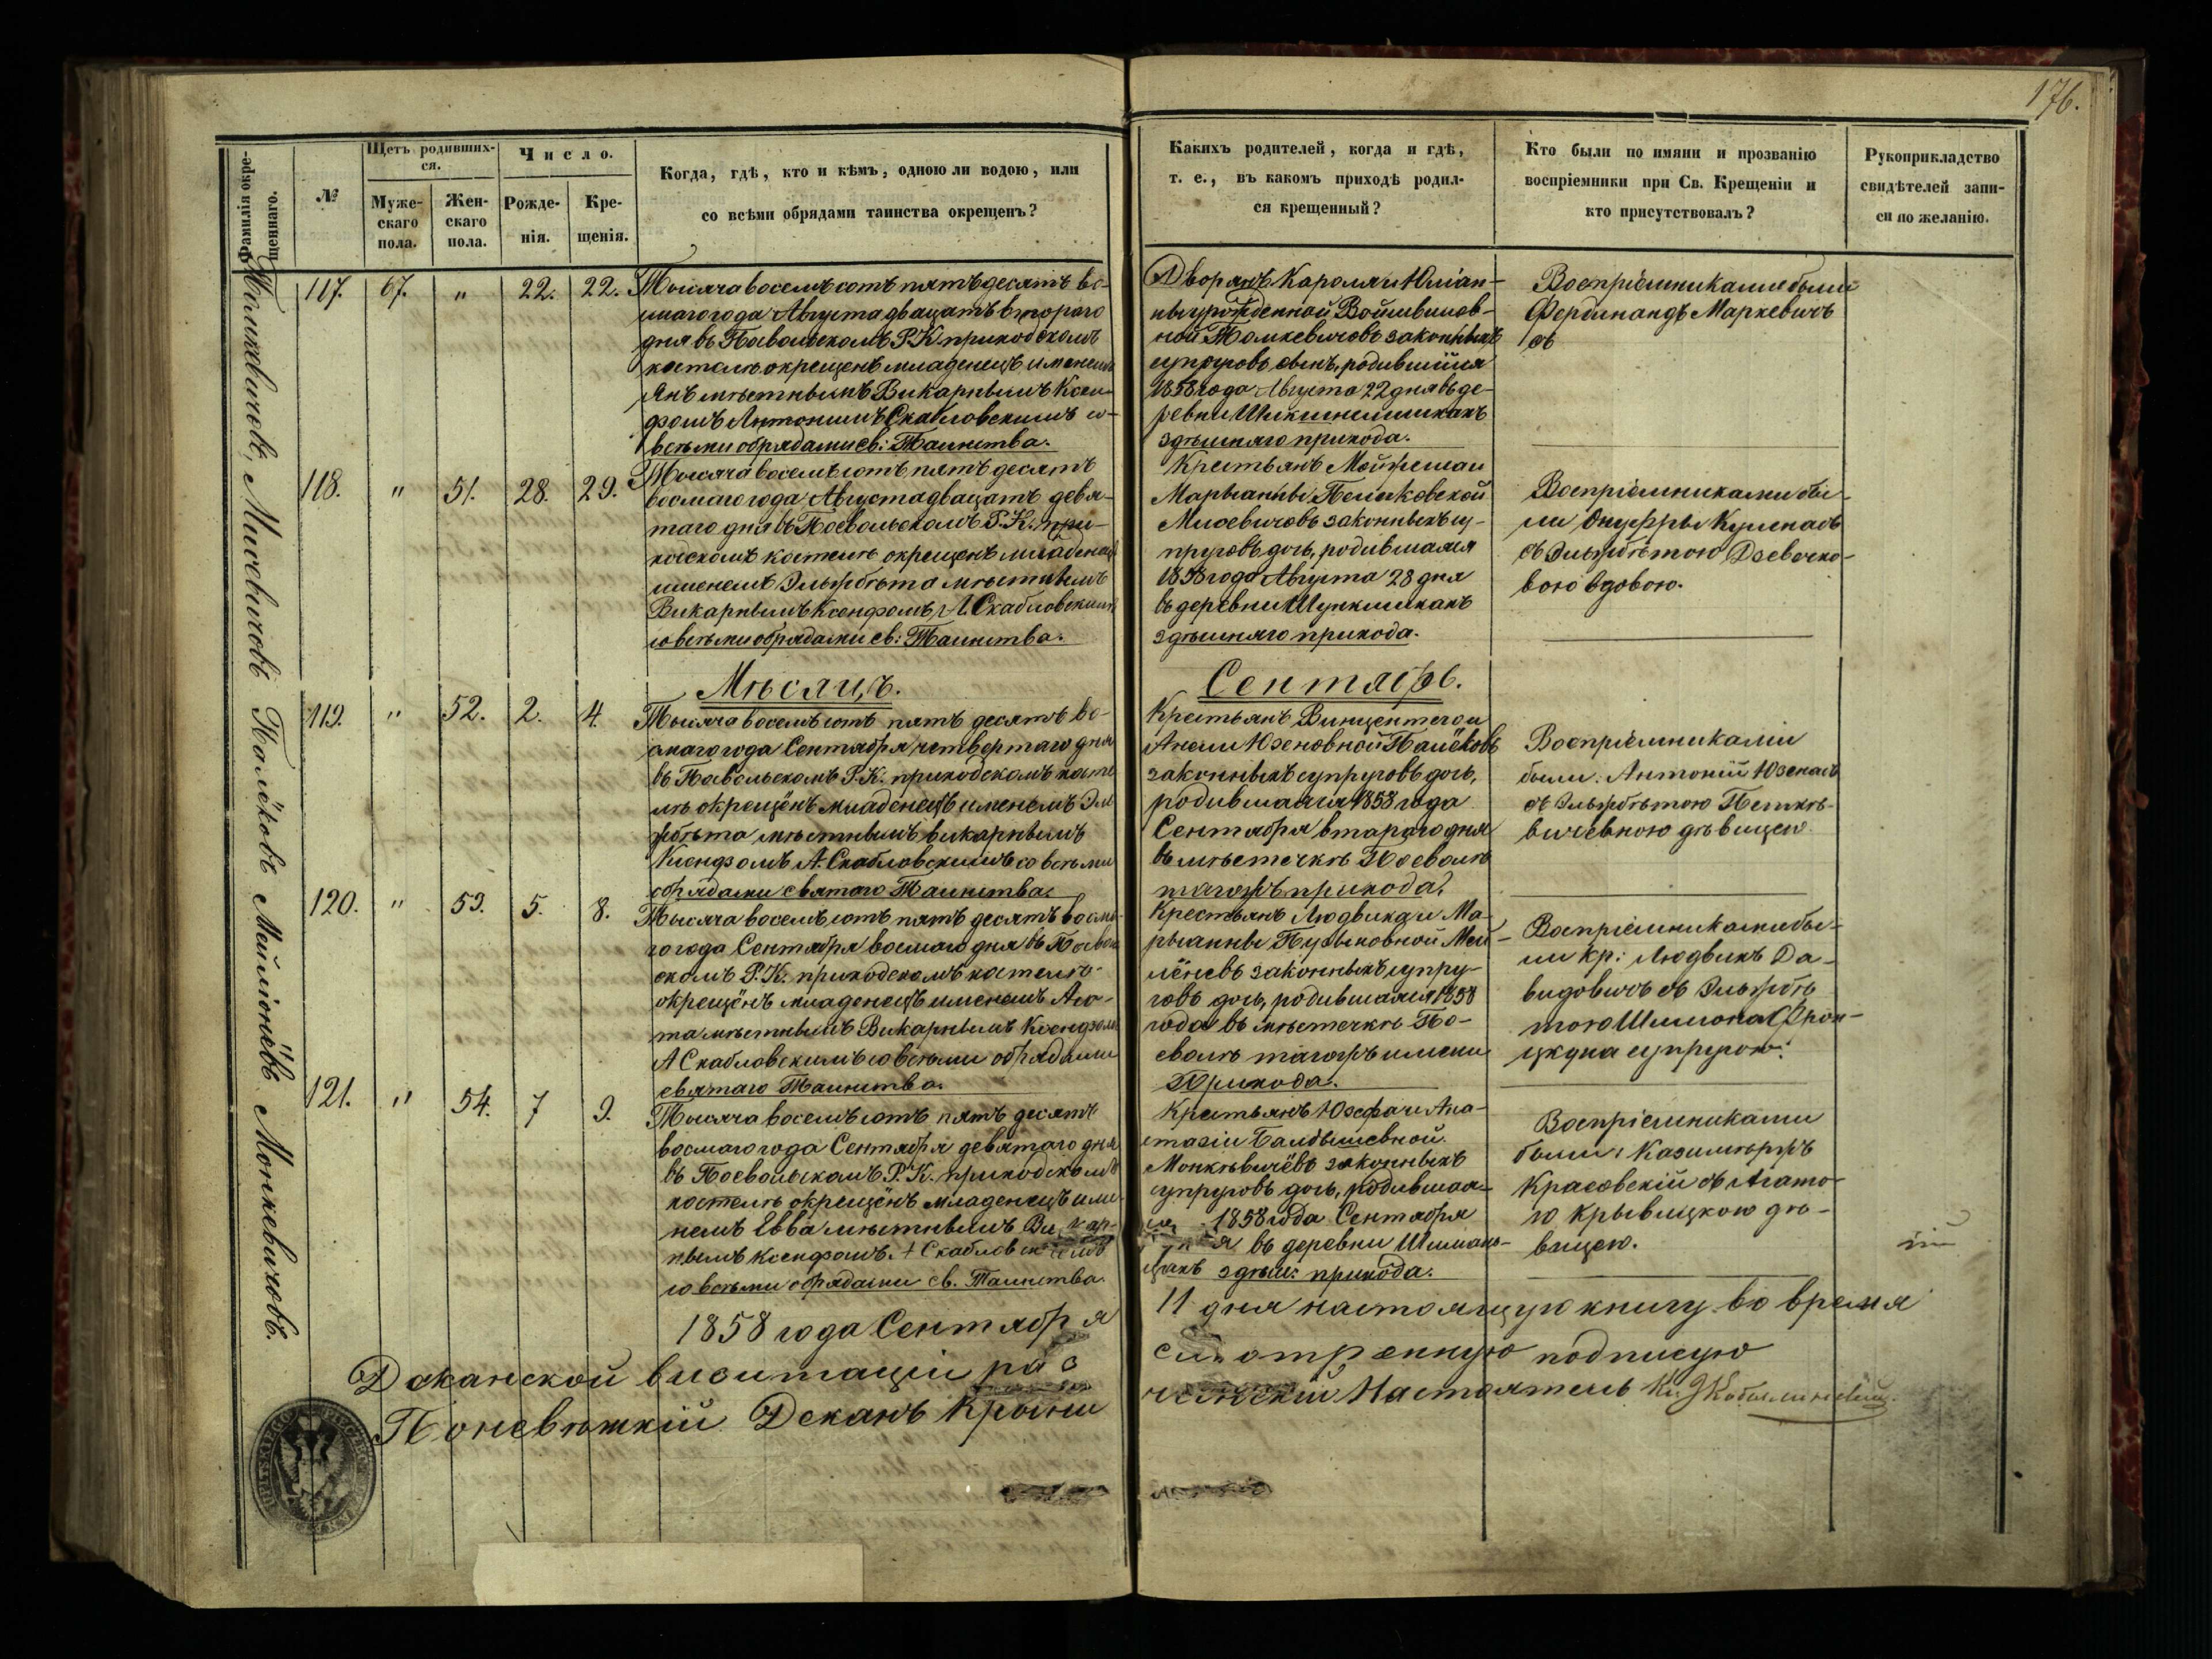 176.
Фамилія окре-
щеннаго.
№
Щетъ родивших-
ся.
Муже-
скаго
пола.
Жен-
скаго
пола.
Число.
Рожде-
нія.
Кре-
щенія.
Когда, гдѣ, кто и кѣмъ, одною ли водою, или
со всѣми обрядами таинства окрещенъ?
Каихъ родителей, когда и гдѣ,
т. е., въ какомъ приходѣ родил-
ся крещенный?
Кто были по имяни и прозванію
воспріемники при Св. Крещеніи и
кто присутствовалъ?
Рукоприкладство
свидѣтелей запи-
си по желанію.
117. 67. " 22. 22.
Тысяча восемъ сотъ пятъдесятъ во-
смаго года Августа двацатъ втораго
дня въ Посвольскомъ Р.К. приходскомъ
костелѣ окрещенъ младенецъ именемъ
Янъ мѣстнымъ Викарнымъ Ксен-
дзомъ Антонимъ Скабловскимъ со
всѣми обрядами св: Таинства.
Дворянъ Кароля и Юліан-
ны урожденной
законныхъ
супруговъ сынъ, родившійся
1858 года Августа 22 дня въ де-
ревни
здѣшняго прихода.
Воспріемниками были
Фердинандъ Маркевичъ
съ
118. " 51. 28. 29.
Тысяча восемъ сотъ пятъ десятъ
восмаго года Августа двацатъ девя-
таго дня въ Посвольскомъ Р.К. при-
хоскомъ костелѣ окрещенъ младенецъ
именемъ Эльжбѣта мѣстнымъ
Викарнымъ Ксендзомъ А. Скабловскимъ
со всѣми обрядами св: Таинства.
Крестьянъ
Марыанны
Мисевичовъ законныхъ су-
пруговъ дочь, родившаяся
1858 года Августа 28 дня
въ деревни
здѣшняго прихода.
Воспріемниками бы-
ли Онуфры
съ Эльжбѣтою
вою вдовою.
Мѣсяцъ.
Сентябрь.
119. " 52. 2. 4.
Тысяча восемъ сотъ пятъ десятъ во-
смаго года Сентября четвертаго дня
въ Посвольскомъ Р.К. приходскомъ косте
лѣ окрещёнъ младенецъ именемъ Эль
жбѣта мѣстнымъ викарнымъ
Ксендзомъ А. Скабловскимъ со всѣми
обрядами святаго Таинства.
Крестьянъ Винцентего и
законныхъ супруговъ дочь,
родившаяся 1858 года
Сентября втараго дня
въ мѣстечкѣ Посволѣ
тагожъ прихода.
Воспріемниками
были: Антоній Юзенасъ
съ Эльжбѣтою Петкѣ-
вичевною дѣвицею.
120. " 53. 5. 8.
Тысяча восемъ сотъ пятъ десятъ восма-
го года Сентября восмаго дня въ Посволь
скомъ Р.К. приходскомъ костелѣ
окрещёнъ младенецъ именемъ Ага-
та мѣстнымъ Викарнымъ Ксендзомъ
А Скабловскимъ со всѣми обрядами
святаго Таинства.
Крестьянъ Людвика и Ма-
рыанны
законныхъ супру-
говъ дочь, родившаяся 1858
года въ мѣстечкѣ По-
сволѣ тагожъ имени
Прихода.
Воспріемниками бы-
ли кр: Людвикъ Да-
видовичъ съ Эльжбѣ
тою Шимона
супругою.
121. " 54. 7 9.
Тысяча восемъ сотъ пятъ десятъ
восмаго года Сентября девятаго дня
въ Посвольскомъ Р.К. приходскомъ
костелѣ окрещёнъ младенецъ име
немъ Евва мѣстнымъ Викар-
нымъ Ксендзомъ А Скабловскимъ
со всѣми обрядами св. Таинства.
Крестьянъ Юзефа и Ана-
стазіи
Монкѣвичёвъ законныхъ
супруговъ дочь, родившая-
ся 1858 года Сентября
въ деревни
здѣш: прихода.
Воспріемниками
были: Казимѣржъ
Красовскій съ Агато-
ю Крывицкою дѣ-
вицею.
1858 года Сентября 11 дня настоящую книгу во время
Деканской виситаціи разсмотренную подписую
Поневѣжскій Деканъ Настоятель